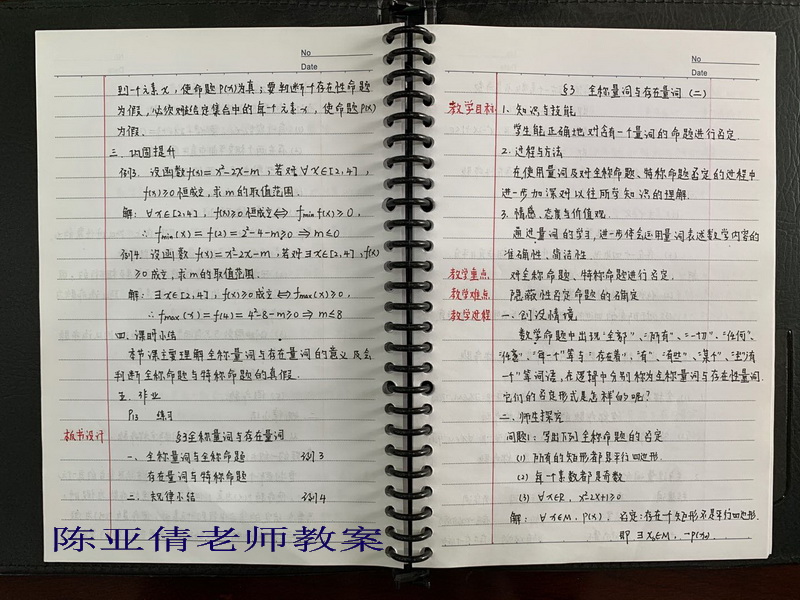 No
Date
到一个元素x，使命题P(x)为真；要判断一个存在性命题
为假，必须对给定集合中的每个元素x，使命题P(x)
为假.
三. 巩固提升
例3. 设函数f(x)=x²-2x-m，若对∀x∈[2,4]，
f(x)≥0恒成立，求m的取值范围.
解：∀x∈[2,4]，f(x)≥0恒成立⇔ fmin f(x)≥0，
∴ fmin(x)=f(2)=2²-4-m≥0 ⇒ m≤0
例4. 设函数 f(x)=x²-2x-m，若对∃x∈[2,4]，f(x)
≥0成立，求m的取值范围.
解：∃x∈[2,4]，f(x)≥0成立⇔ fmax(x)≥0，
∴ fmax(x)=f(4)=4²-8-m≥0 ⇒ m≤8
四. 课时小结
本节课主要理解全称量词与存在量词的意义及会
判断全称命题与特称命题的真假.
五. 作业
P13 练习
板书设计
§3全称量词与存在量词
一、全称量词与全称命题 例3
存在量词与特称命题
二、规律小结 例4
陈亚倩老师教案
No
Date
§3 全称量词与存在量词（二）
教学目标
1. 知识与技能
学生能正确地对含有一个量词的命题进行否定.
2. 过程与方法
在使用量词及对全称命题、特称命题否定的过程中
进一步加深对以往所学知识的理解.
3. 情感、态度与价值观.
通过量词的学习，进一步体会运用量词表述数学内容的
准确性、简洁性.
教学重点 对全称命题、特称命题进行否定.
教学难点 隐蔽性否定命题的确定
教学过程 一、创设情境
数学命题中出现“全部”、“所有”、“一切”、“任何”、
“任意”、“每一个”等与“存在着”、“有”、“有些”、“某个”、“至少有
一个”等词语，在逻辑中分别称为全称量词与存在性量词.
它们的否定形式是怎样的呢？
二、师生探究
问题1：写出下列全称命题的否定
(1) 所有的矩形都是平行四边形.
(2) 每一个素数都是奇数
(3) ∀x∈R, x²-2x+1≥0
解： ∀x∈M，P(x). 否定：存在一个矩形不是平行四边形.
即 ∃x₀∈M，¬P(x₀)